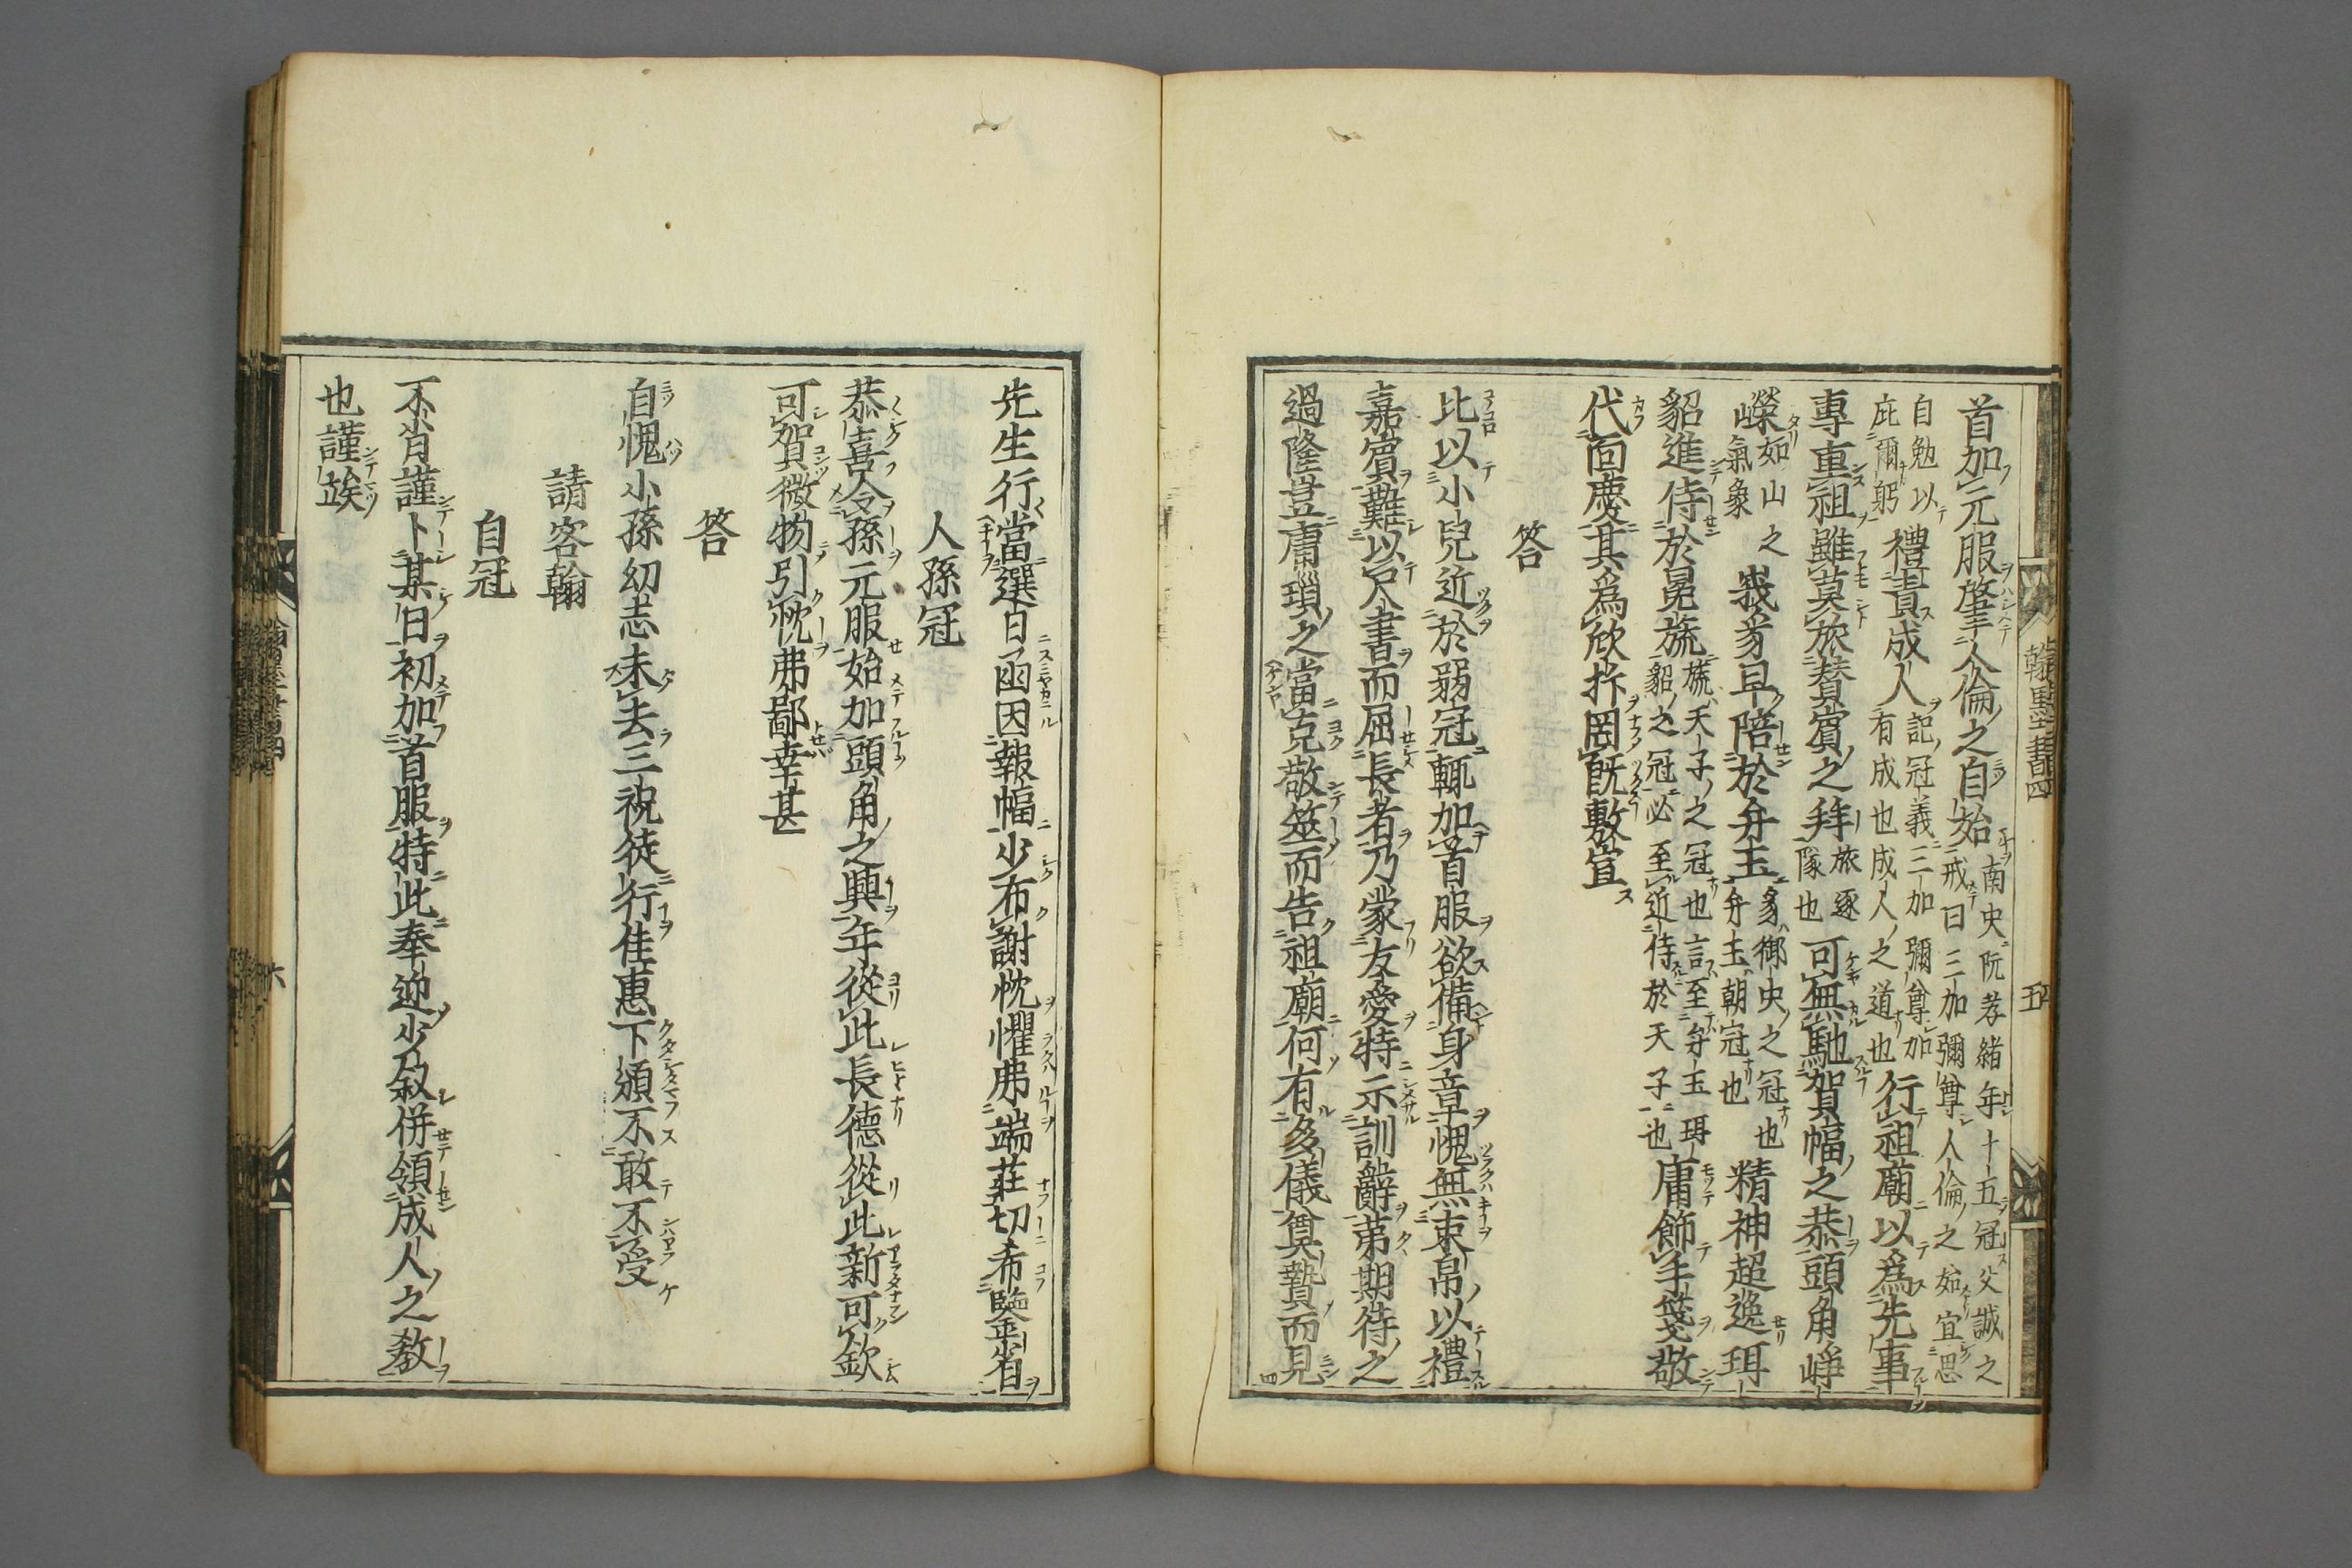 首加元服肇人倫之自始南史阮孝緒年十五冠父誡之
戒曰三加彌尊人倫之始宜思
自勉以
庇爾躬
禮責成人
記冠義三加彌尊加
有成也成人之道也
行祖廟以爲先事
專車祖雖莫旅賛賓之拜
旅逐
隊也
可無馳賀幅之恭頭角崢
嶸
如山之
氣象
峩豸早陪於弁玉
豸御史之冠也
弁玉朝冠也
精神超逸珥
貂進侍於冕旒
旒天子之冠也言至弁玉珥
貂之冠必至近侍於天子也
庸飾手箋敬
代面慶其爲欣抃罔旣敷宣
答
比以小兒近於弱冠輒加首服欲備身章愧無束帛以禮
嘉賓難以尺書而屈長者乃蒙友愛特示訓辭第期待之
過隆豈庸瑣之當克敬筮而告祖廟何有多儀奠贄而見
翰墨書四
五
先生行當選日函因報幅少布謝忱懼弗端莊切希鹽乘省
人孫冠
恭喜令孫元服始加頭角之興年從此長德從此新可欽
可賀微物引忱弗鄙幸甚
答
自愧小孫幻志未去三祝徒行佳惠下頒不敢不受
請客翰
自冠
不肖謹卜某日初加首服特此奉迎少敍併領成人之敎
也謹竢
六